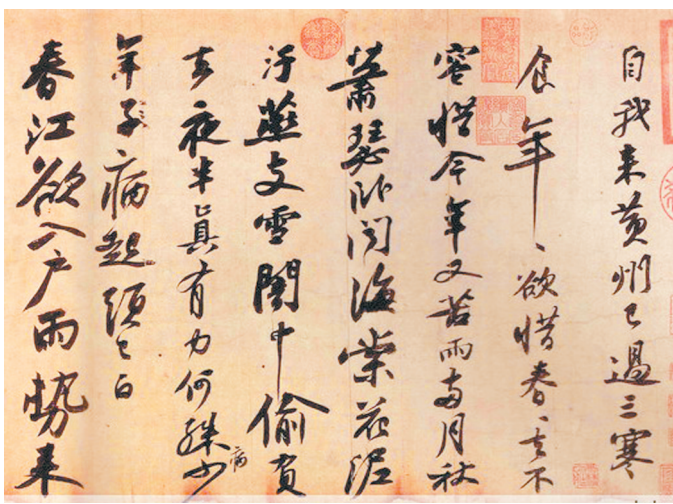 自我來黃州已過三寒
食年、欲惜春、去不
容惜今年又苦雨兩月秋
蕭瑟臥聞海棠花泥
汙燕支雪闇中偷負
去夜半眞有力何殊病少
年子病起須已白
春江欲入戶雨勢來